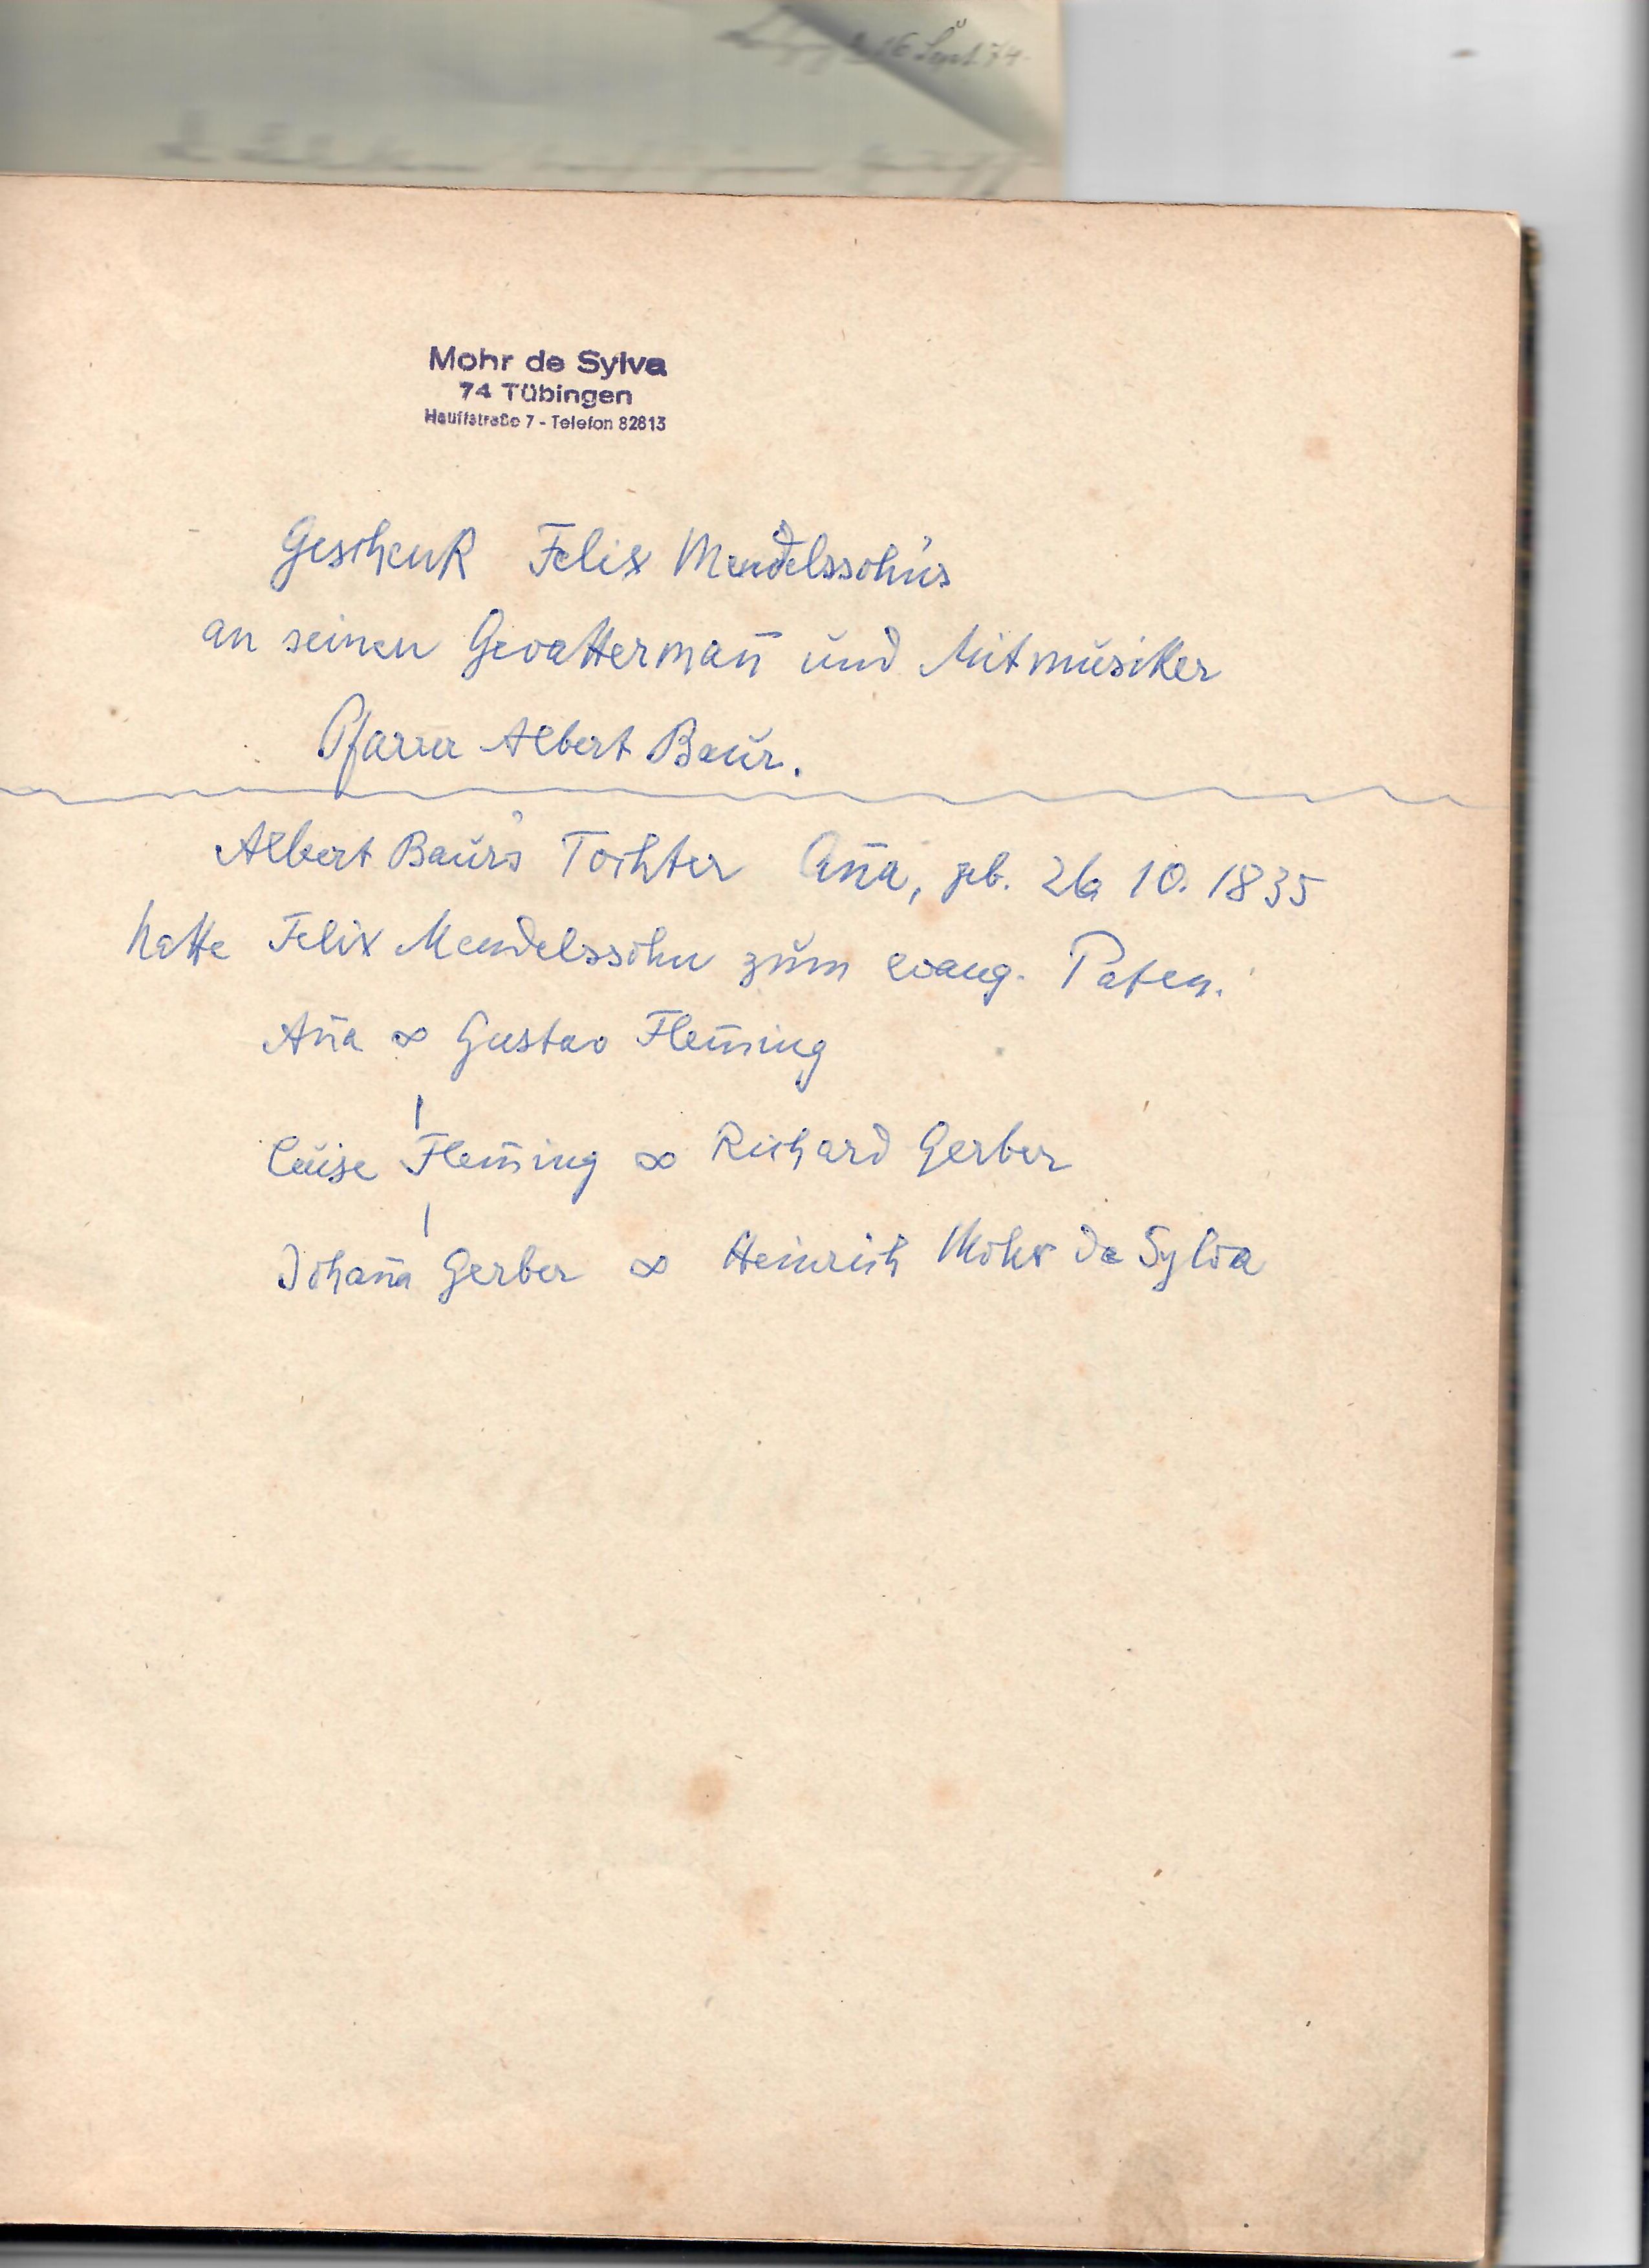 16 Sept 74
Mohr de Sylva
74 Tübingen
Hauffstraße 7 - Telefon 82813
Geschenk Felix Mendelssohn's
an seinen Gevattermañ und Mitmusiker
Pfarrer Albert Baur.
Albert Baur's Tochter Aña, geb. 26 10. 1835
hatte Felix Mendelssohn zum evang. Paten.
Aña ∞ Gustav Flem̄ing
Luise Flem̄ing ∞ Richard Gerber
Johaña Gerber ∞ Heinrich Mohr de Sylva